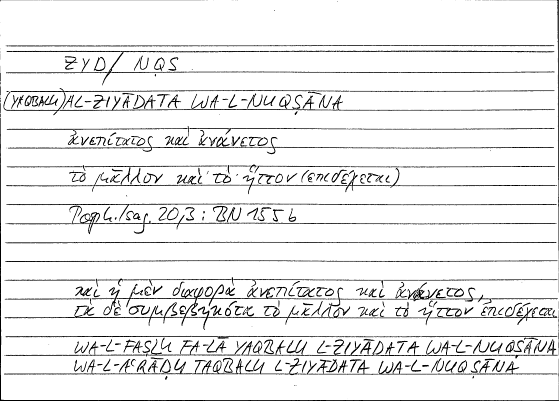 ZYD/ NQṢ
(YAQBALU) AL-ZIYĀDATA WA-L-NUQṢĀNA
ἀνεπίτατος καὶ ἀνάνετος
τὸ μᾶλλον καὶ τὸ ἧττον (ἐπιδέχεται)
Porph. Isag. 20,3 : BN 155 b
καὶ ἡ μὲν διαφορὰ ἀνεπίτατος καὶ ἀνάνετος,
τὰ δὲ συμβεβηκότα τὸ μᾶλλον καὶ τὸ ἧττον ἐπιδέχεται
WA-L-FAṢLU FA-LĀ YAQBALU L-ZIYĀDATA WA-L-NUQṢĀNA
WA-L-AʿRĀḌU TAQBALU L-ZIYĀDATA WA-L-NUQṢĀNA